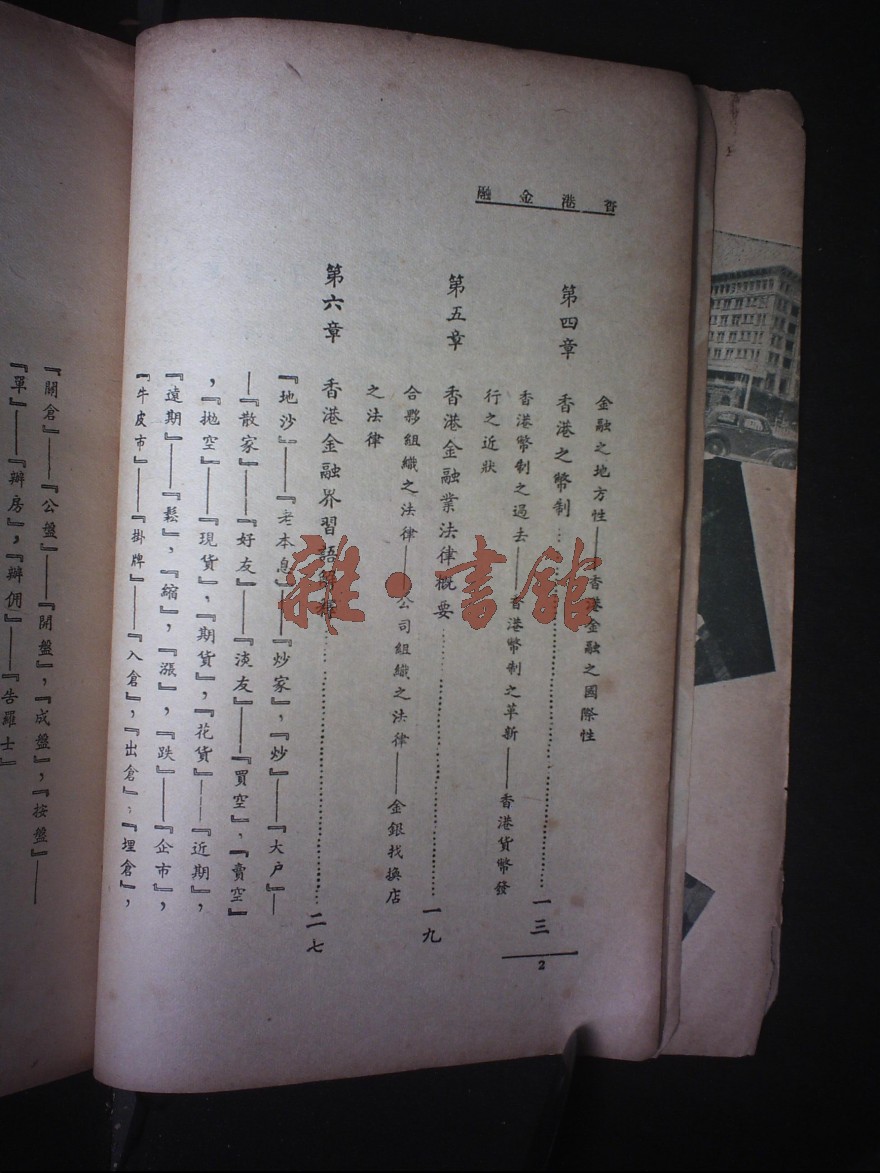 香港金融
金融之地方性——香港金融之國際性
第四章 香港之幣制……一三
香港幣制之過去——香港幣制之革新——香港貨幣發
行之近狀
第五章 香港金融業法律概要……一九
合夥組織之法律——公司組織之法律——金銀找換店
之法律
第六章 香港金融界習語……二七
『地沙』——『老本息』——『炒家』，『炒』——『大戶』—
—『散家』——『好友』——『淡友』——『買空』，『賣空』
，『拋空』——『現貨』，『期貨』，『花貨』——『近期』，
『遠期』——『鬆』，『縮』，『漲』，『跌』——『企市』，
『牛皮市』——『掛牌』——『入倉』，『出倉』，『埋倉』，
2
『開倉』——『公盤』——『開盤』，『成盤』，『按盤』——
『單』——『辦房』，『辦佣』——『告羅士』
雜·書館